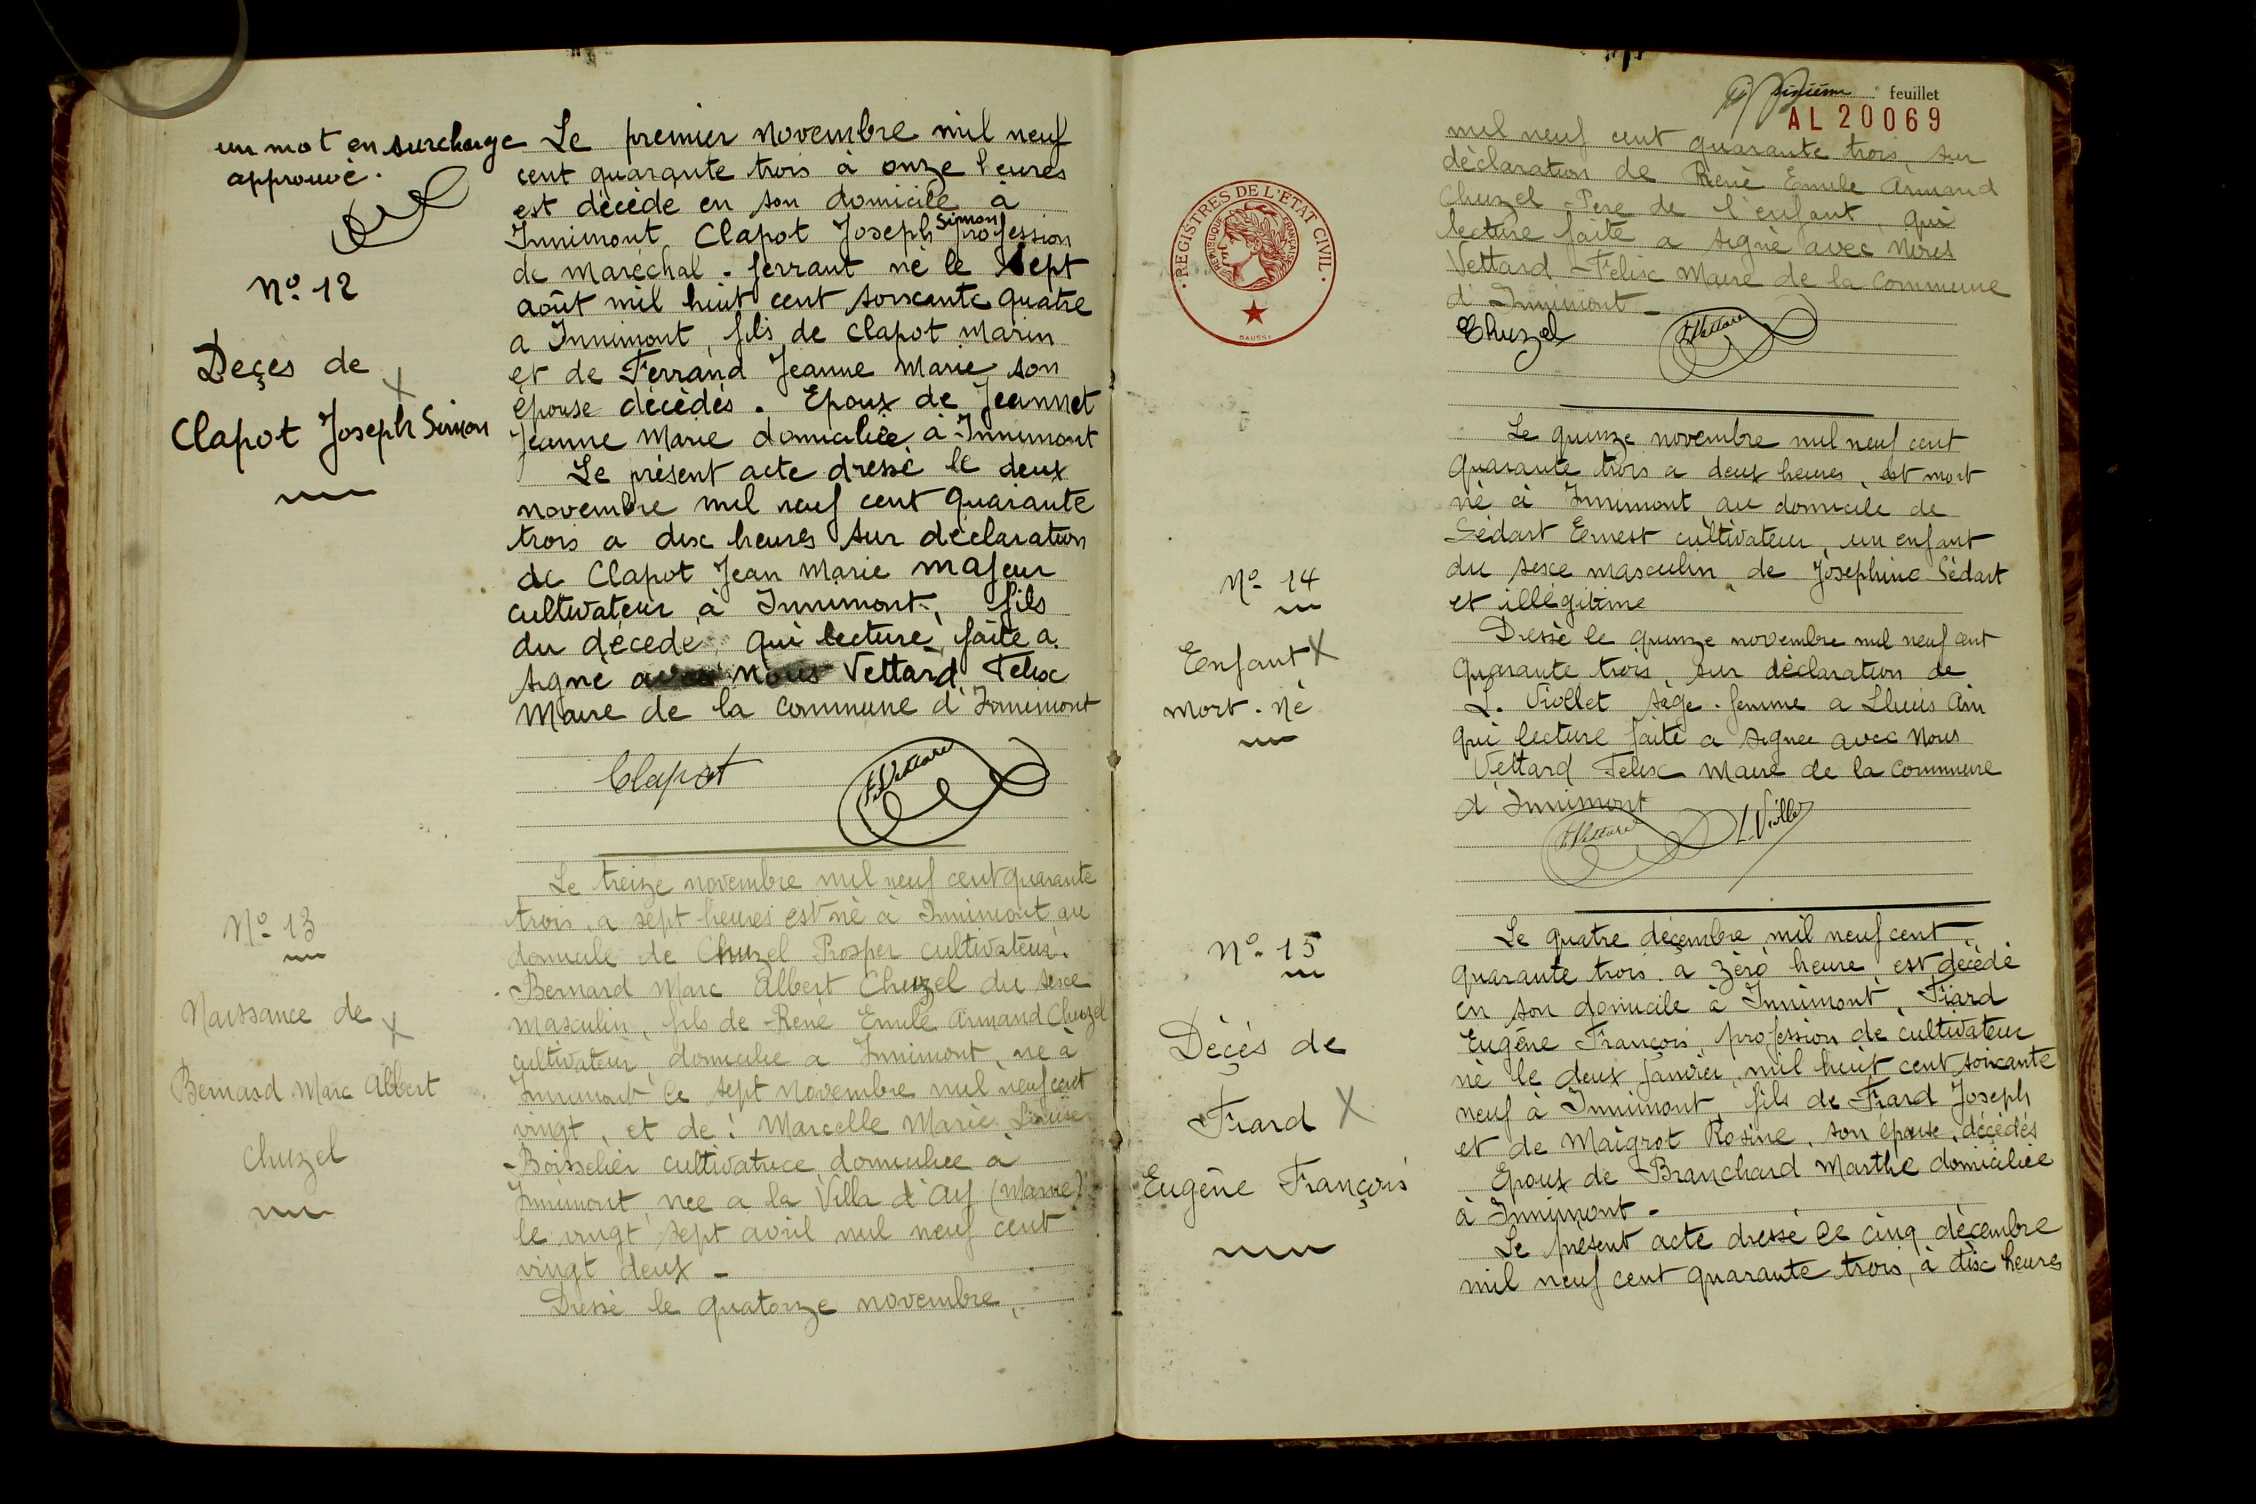 un mot en surcharge
approuvé.
N° 12
Deçès de
Clapot Joseph Simon
Le premier novembre mil neuf
cent quarante trois à onze heures
est décédé en son domicile à
Innimont Clapot Joseph Simon profession
de maréchal-ferrant né le sept
août mil huit cent soixante quatre
a Innimont, fils de Clapot Marin
et de Ferrand Jeanne Marie son
épouse décédés. Epoux de Jeannet
Jeanne Marie domiciliée à Innimont
Le présent acte dressé le deux
novembre mil neuf cent quarante
trois a dix heures sur déclaration
de Clapot Jean Marie majeur
cultivateur à Innimont, fils
du décédé, qui lecture faite a
signé avec nous Vettard Felix
Maire de la commune d'Innimont
Clapot F. Vettard
N° 13
Naissance de
Bernard Marc Albert
Chuzel
Le treize novembre mil neuf cent quarante
trois, a sept heures est né à Innimont au
domicile de Chuzel Prosper cultivateur.
Bernard Marc Albert Chuzel du sexe
masculin, fils de René Emile Armand Chuzel
cultivateur, domicilié a Innimont, né à
Innimont le sept novembre mil neuf cent
vingt, et de: Marcelle Marie Louise
Boisselier cultivatrice domiciliée à
Innimont née a la Villa d'Ay (Marne)
le vingt sept avril mil neuf cent
vingt deux -
Dressé le quatorze novembre,
sixième feuillet
AL 20069
REGISTRES DE L'ÉTAT CIVIL
RÉPUBLIQUE FRANÇAISE
mil neuf cent quarante trois, sur
déclaration de René Emile Armand
Chuzel - Père de l'enfant, qui
lecture faite a signé avec Nous
Vettard - Felix Maire de la commune
d'Innimont -
Chuzel F. Vettard
N° 14
Enfant
mort-né
Le quinze novembre mil neuf cent
quarante trois a deux heures, est mort
né à Innimont au domicile de
Sédart Ernest cultivateur, un enfant
du sexe masculin de Josephine Sédart
et illégitime
Dressé le quinze novembre mil neuf cent
quarante trois, sur déclaration de
L. Viollet sage-femme a Lhuis Ain
qui lecture faite a signée avec Nous
Vettard Felix Maire de la commune
d'Innimont
F. Vettard L. Viollet
N° 15
Décès de
Fiard
Eugène François
Le quatre décembre mil neuf cent
quarante trois à zéro heure est décédé
en son domicile à Innimont, Fiard
Eugène François, profession de cultivateur
né le deux janvier mil huit cent soixante
neuf à Innimont, fils de Fiard Joseph
et de Maigrot Rosine, son épouse, décédés
Epoux de Branchard Marthe domiciliée
à Innimont -
Le présent acte dressé le cinq décembre
mil neuf cent quarante trois, à dix heures